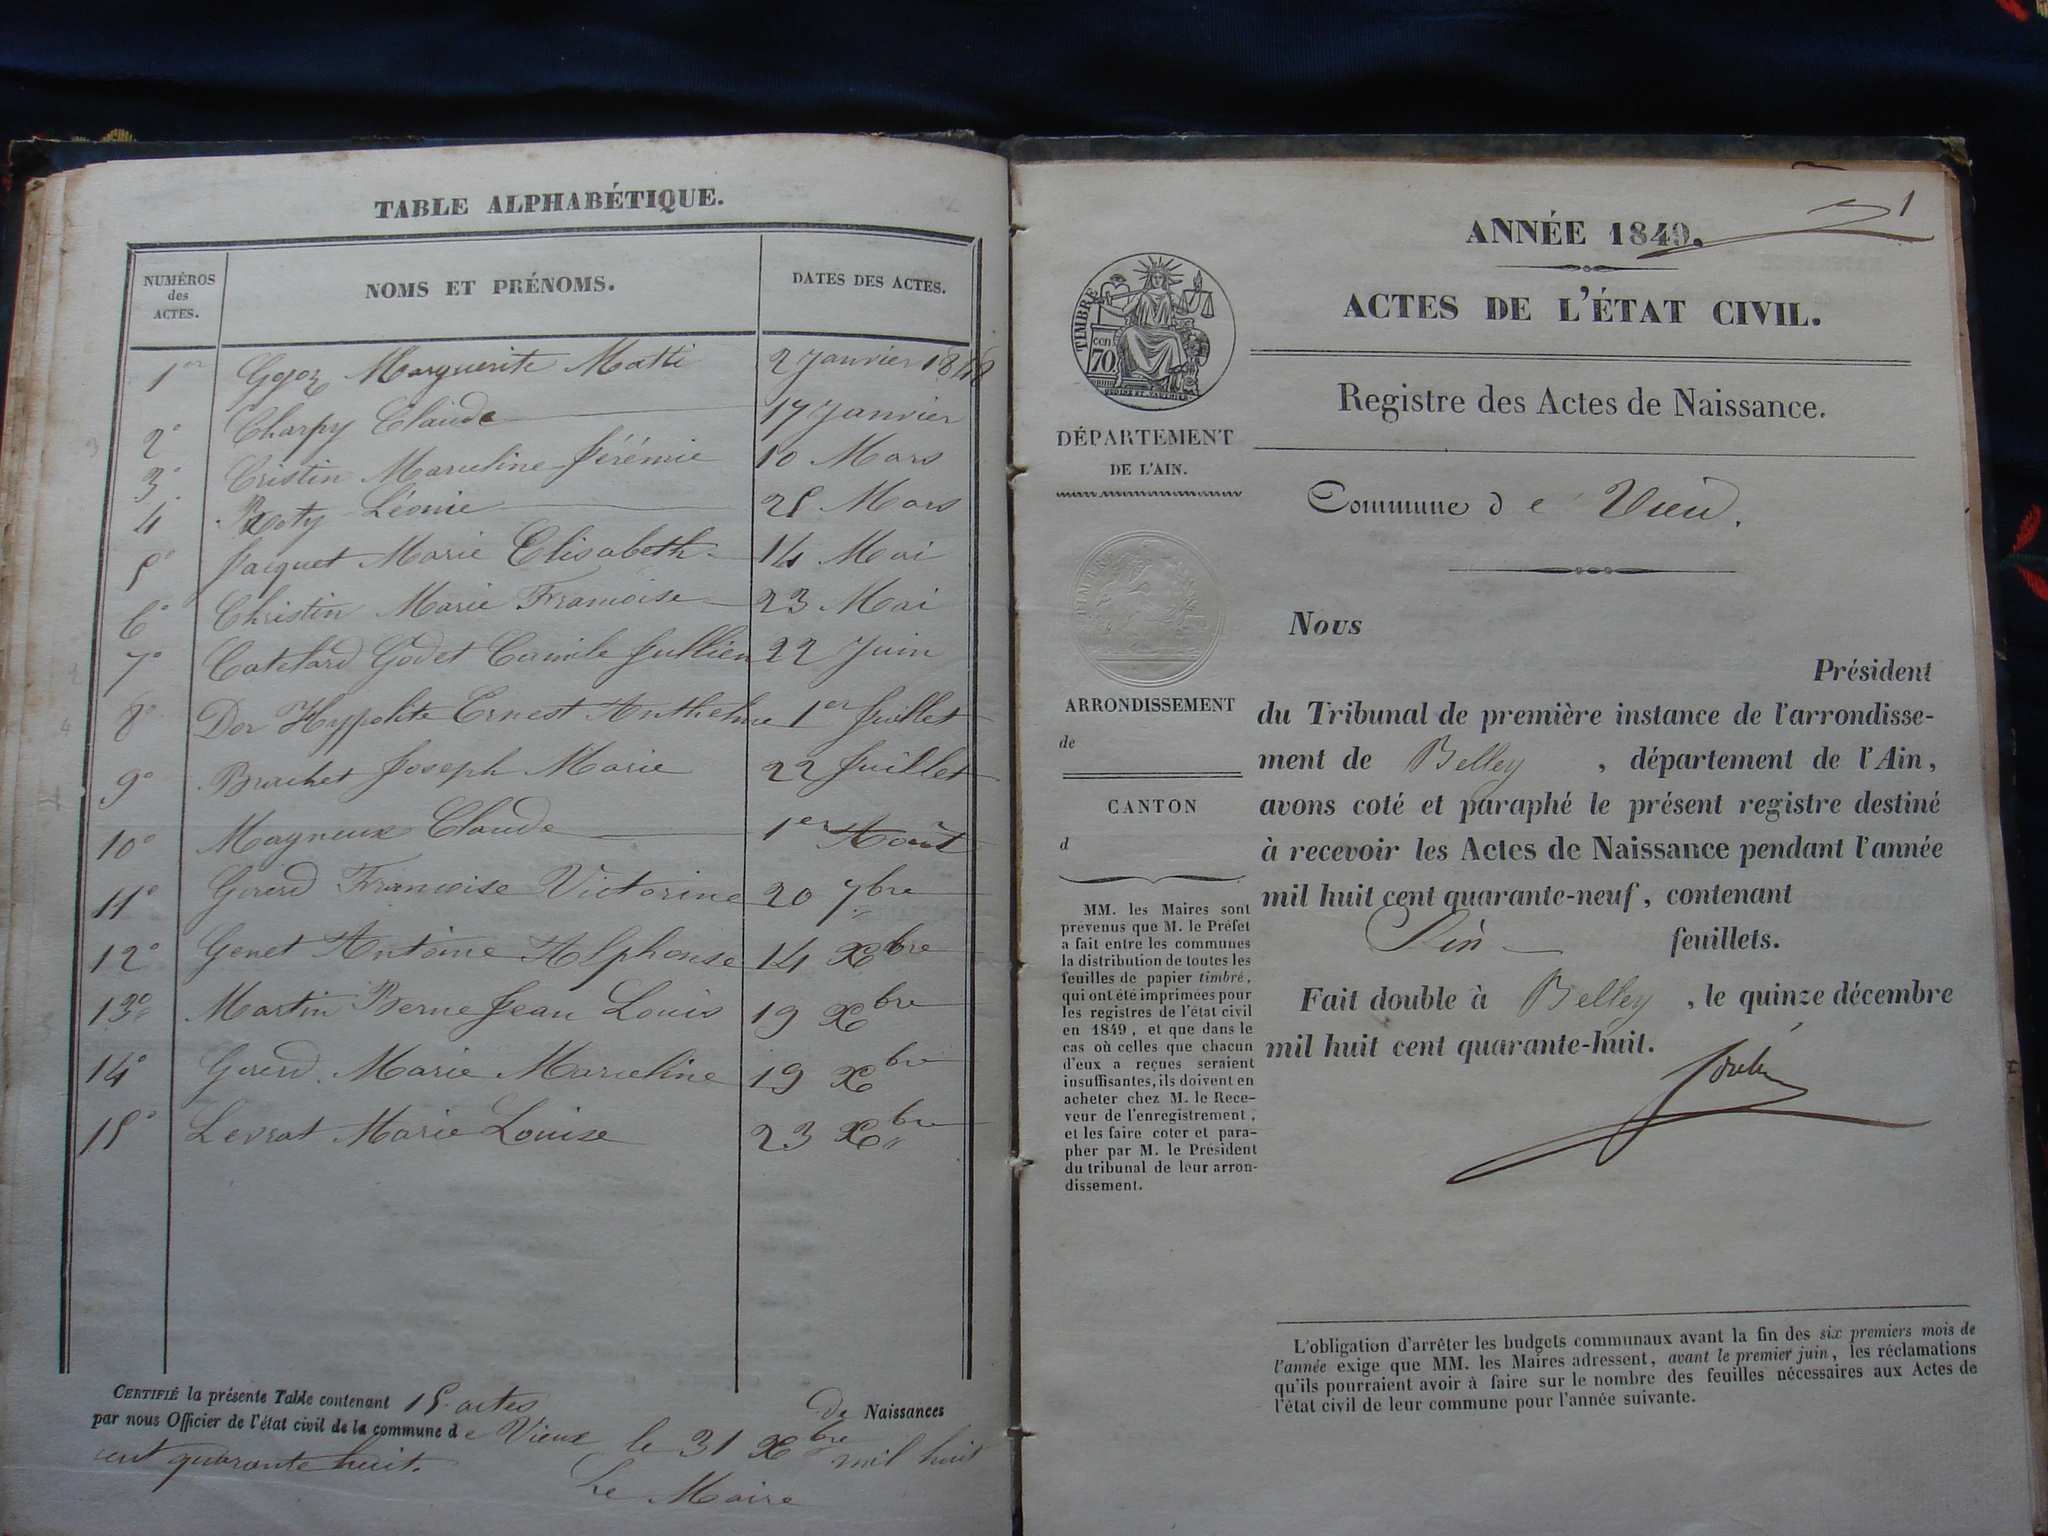 TABLE ALPHABÉTIQUE.
NUMÉROS des ACTES. NOMS ET PRÉNOMS. DATES DES ACTES.
1er Marguerite 2 Janvier 1848
2° Charpy Claude 17 Janvier
3° Cristin Marceline Jérémie 10 Mars
4 Léonie 25 Mars
5° Jacquet Marie Elisabeth 14 Mai
6° Christin Marie Francoise 23 Mai
7° Catelard Godet Camile Jullien 22 Juin
8° Dor Hyppolite Ernest Anthelme 1er Juillet
9° Brachet Joseph Marie 22 Juillet
10° Magneux Claude 1er Août
11° Gererd Francoise Victorine 20 7bre
12° Genet Antoine Alphonse 14 Xbre
13° Martin Berne Jean Louis 19 Xbre
14° Gererd Marie Marceline 19 Xbre
15° Levrat Marie Louise 23 Xbre
CERTIFIÉ la présente Table contenant 15 actes de Naissances
par nous Officier de l'état civil de la commune de Vieux le 31 Xbre mil huit
cent quarante huit.
Le Maire
1
ANNÉE 1849.
ACTES DE L'ÉTAT CIVIL.
Registre des Actes de Naissance.
TIMBRE
cen
70
DÉPARTEMENT
DE L'AIN.
Commune de Vieu.
Nous
Président
du Tribunal de première instance de l'arrondisse-
ment de Belley , département de l'Ain,
avons coté et paraphé le présent registre destiné
à recevoir les Actes de Naissance pendant l'année
mil huit cent quarante-neuf, contenant
feuillets.
Fait double à Belley , le quinze décembre
mil huit cent quarante-huit.
ARRONDISSEMENT
de
CANTON
d
MM. les Maires sont
prévenus que M. le Préfet
a fait entre les communes
la distribution de toutes les
feuilles de papier timbré,
qui ont été imprimées pour
les registres de l'état civil
en 1849, et que dans le
cas où celles que chacun
d'eux a reçues seraient
insuffisantes, ils doivent en
acheter chez M. le Rece-
veur de l'enregistrement,
et les faire coter et para-
pher par M. le Président
du tribunal de leur arron-
dissement.
L'obligation d'arrêter les budgets communaux avant la fin des six premiers mois de
l'année exige que MM. les Maires adressent, avant le premier juin, les réclamations
qu'ils pourraient avoir à faire sur le nombre des feuilles nécessaires aux Actes de
l'état civil de leur commune pour l'année suivante.